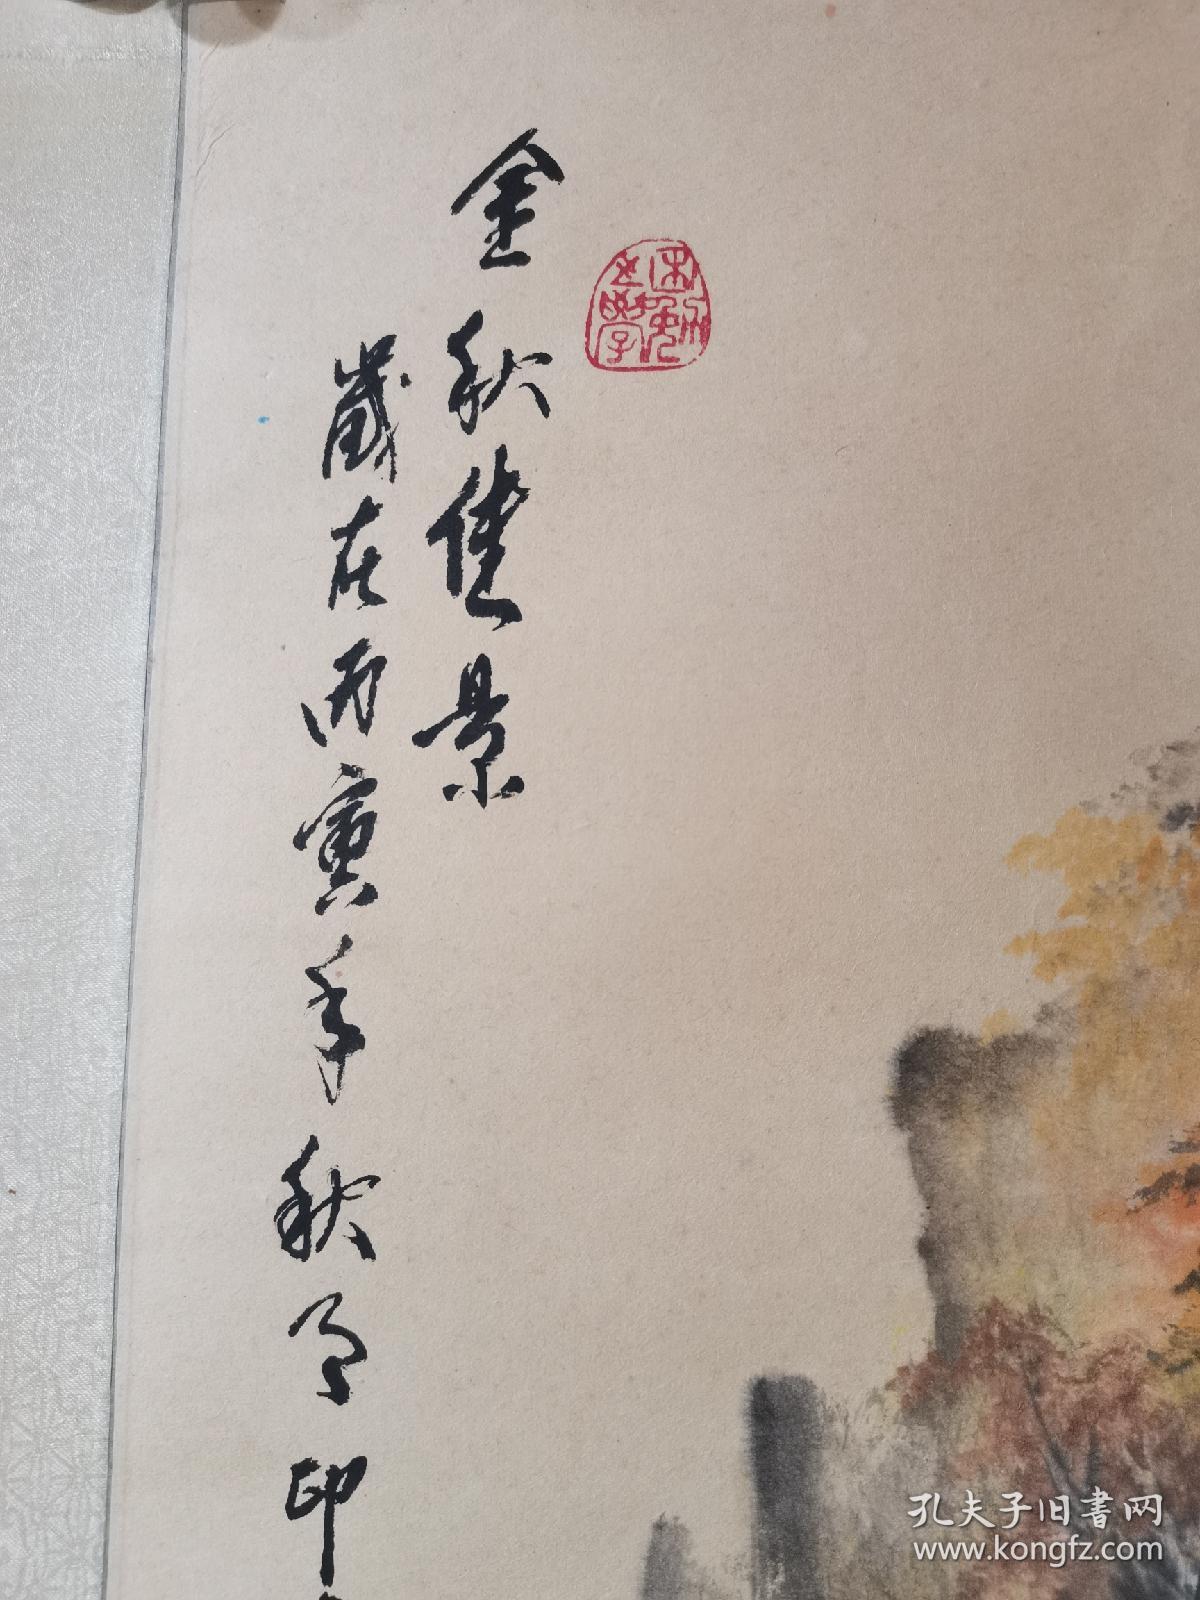 金秋佳景
歲在丙寅年秋月印
孔夫子旧書网
www.kongfz.com